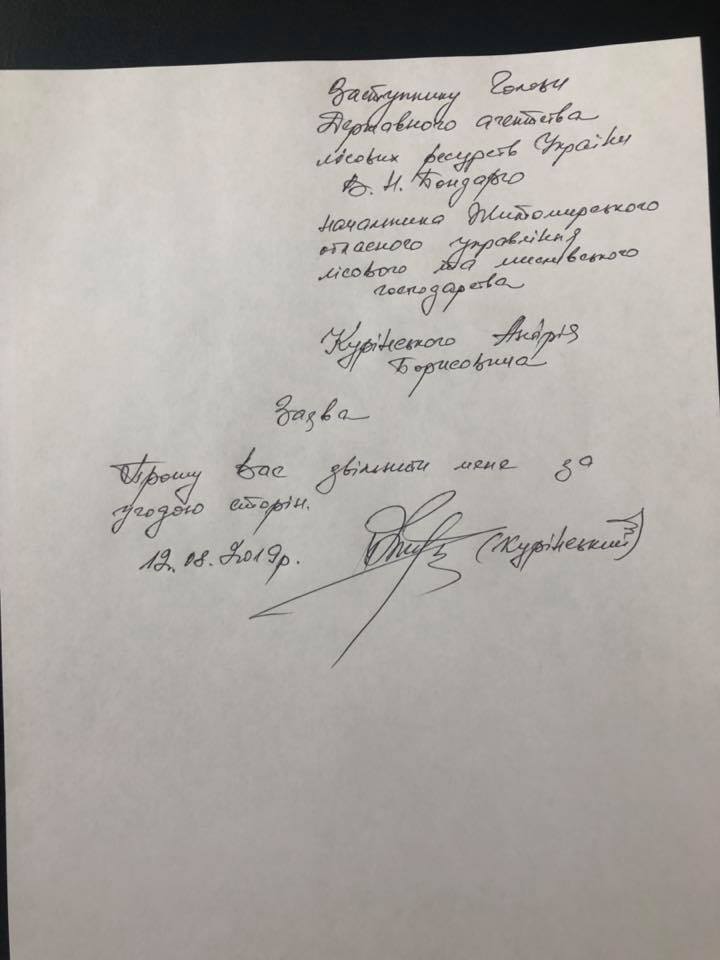 Заступнику Голови
Державного агентства
лісових ресурсів України
В. Н. Бондарю
начальника Житомирського
обласного управління
лісового та мисливського
господарства
Курінського Андрія
Борисовича
Заява
Прошу Вас звільнити мене за
угодою сторін.
12.08.2019р.
(Курінський)